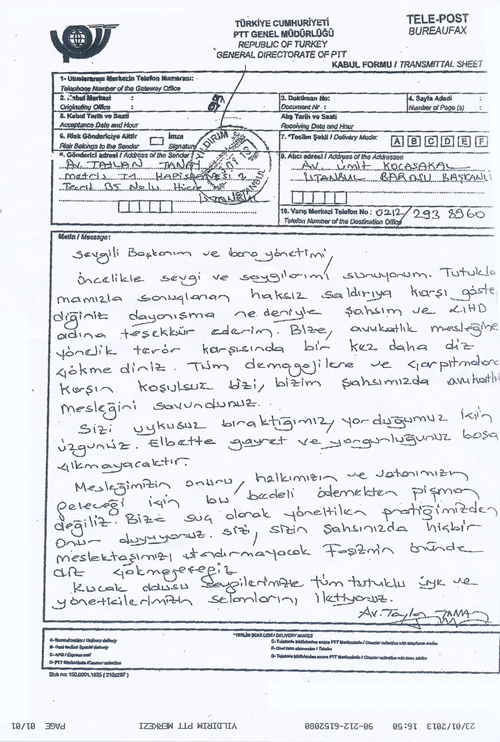 TÜRKİYE CUMHURİYETİ
PTT GENEL MÜDÜRLÜĞÜ
REPUBLIC OF TURKEY
GENERAL DIRECTORATE OF PTT
TELE-POST
BUREAUFAX
KABUL FORMU / TRANSMITTAL SHEET
1- Uluslararası Merkezin Telefon Numarası:
Telephone Number of the Gateway Office
2. Kabul Merkezi :
Originating Office :
3. Doküman No:
Document Nr :
4. Sayfa Adedi :
Number of Page (s) :
5. Kabul Tarih ve Saati
Acceptance Date and Hour
Alış Tarih ve Saati
Receiving Date and Hour
6. Risk Göndericiye Aittir
Risk Belongs to the Sender
İmza
Signature
7. *Teslim Şekli / Delivery Mode:
A B C D E F
Gönderici adresi / Address of the Sender
Av. TAYLAN TANAY
Metris T1 HAPİSHANESİ 2
Tecrit B5 Nolu Hücre
İSTANBUL
YILDIRIM
İSTANBUL
9. Alıcı adresi / Address of the Addressee
Av. Ümit KOCASAKAL
İSTANBUL BAROSU BAŞKANLI
10. Varış Merkezi Telefon No : 0212/293 8960
Telefon Number of the Destination Office
Metin / Message :
Sevgili Başkanım ve baro yönetimi,
Öncelikle sevgi ve saygılarımı sunuyorum. Tutukla
mamızla sonuçlanan haksız saldırıya karşı göste
diğiniz dayanışma nedeniyle şahsım ve ÇHD
adına teşekkür ederim. Bize, avukatlık mesleğine
yönelik terör karşısında bir kez daha diz
çökmediniz. Tüm demagojilere ve çarpıtmalara
karşın koşulsuz bizi, bizim şahsımızda avukatlı
mesleğini savundunuz.
Sizi uykusuz bıraktığımız, yorduğumuz için
üzgünüz. Elbette gayret ve yorgunluğunuz boşa
çıkmayacaktır.
Mesleğimizin onuru, halkımızın ve vatanımızın
geleceği için bu bedeli ödemekten pişman
değiliz. Bize suç olarak yöneltilen pratiğimizden
onur duyuyoruz. Sizi, sizin şahsınızda hiçbir
meslektaşımızı utandırmayacak Faşizmin önünde
diz çökmeyeceğiz
Kucak dolusu sevgilerimizle tüm tutuklu üye ve
yöneticilerimizin selamlarını iletiyoruz.
Av. Taylan TANAY
*TESLİM ŞEKİLLERİ / DELIVERY MODES
23/01/2013 16:50 90-212-6152080 YILDIRIM PTT MERKEZI PAGE 01/01